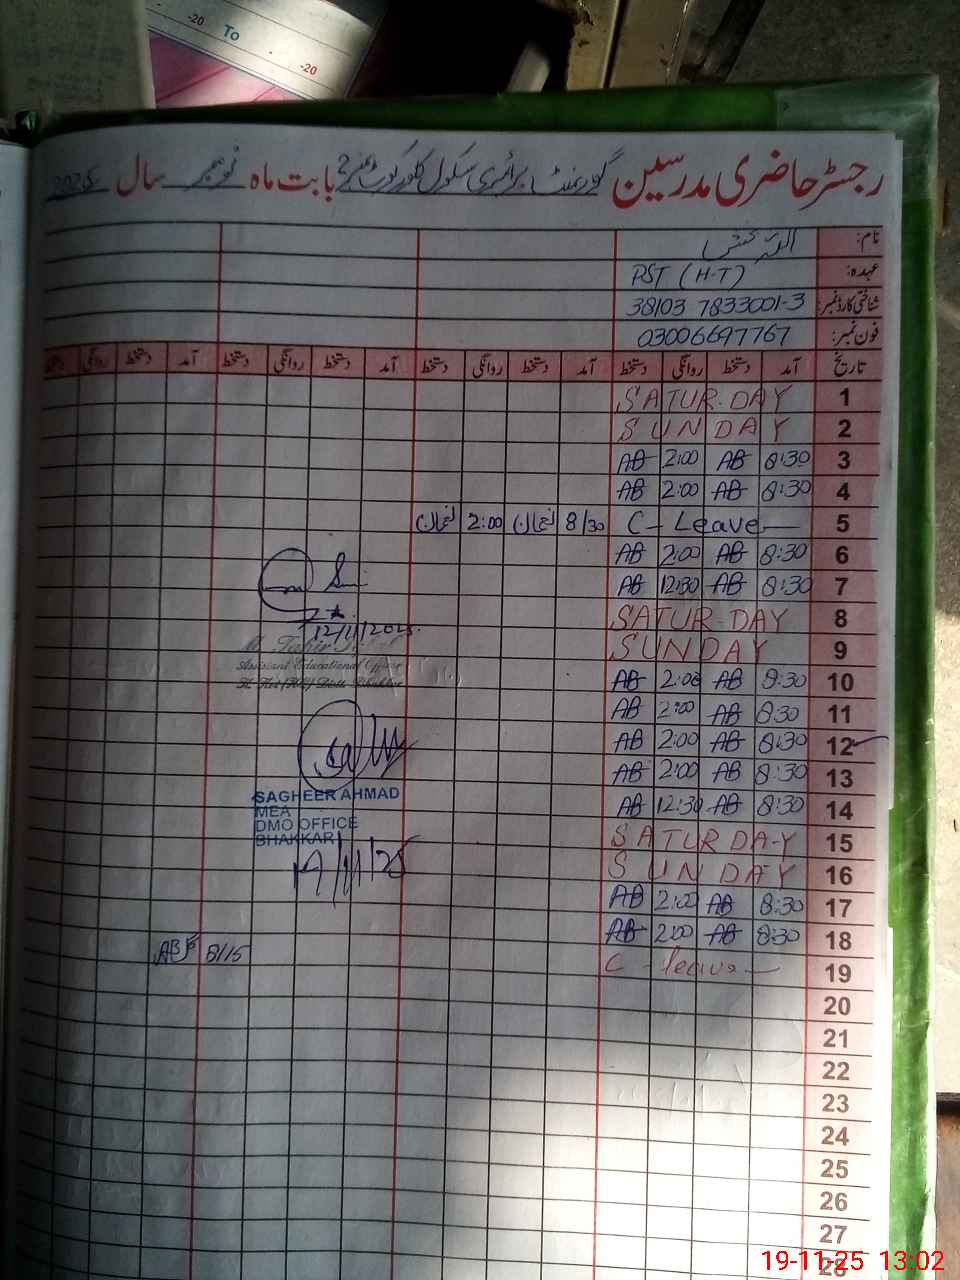 -20 To -20
رجسٹر حاضری مدرسین گورنمنٹ پرائمری سکول کلورکوٹ نمبر 2 بابت ماہ نومبر سال 2025
نام:
عہدہ: PST (H-T)
شناختی کارڈ نمبر: 38103 7833001-3
فون نمبر: 03006697767
تاریخ آمد دستخط روانگی دستخط آمد دستخط روانگی دستخط آمد دستخط روانگی دستخط آمد دستخط روانگی دستخط
1 SATURDAY
2 SUNDAY
3 8:30 AB 2:00 AB
4 8:30 AB 2:00 AB
5 C-Leave 8/30 2:00
6 8:30 AB 2:00 AB
7 8:30 AB 12:30 AB
8 SATURDAY
9 SUNDAY
10 8:30 AB 2:00 AB
11 8:30 AB 2:00 AB
12 8:30 AB 2:00 AB
13 8:30 AB 2:00 AB
14 8:30 AB 12:30 AB
15 SATURDAY
16 SUNDAY
17 8:30 AB 2:00 AB
18 8:30 AB 2:00 AB
19 C-leave 8/15 AB
20
21
22
23
24
25
26
27
28
12/11/2025
M. Tahir
Assistant Educational Officer
SAGHEER AHMAD
MEA
DMO OFFICE
BHAKKAR
19/11/25
19-11-25 13:02